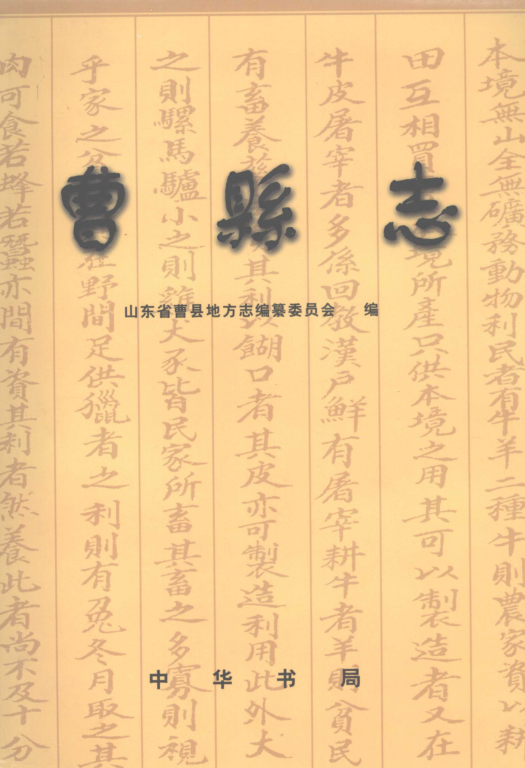 曹縣志
山东省曹县地方志编纂委员会 编
中华书局
本境無山全無礦務動物利民者有牛羊二種牛則農家資以耕
田互相買境所產只供本境之用其可以製造者又在
牛皮屠宰者多係回教漢戶鮮有屠宰耕牛者羊則貧民
有畜養其利以餬口者其皮亦可製造利用此外大
之則騾馬驢小之則雞犬豕皆民家所畜其畜之多寡則視
乎家之在野間足供獵者之利則有兔冬月取之其
肉可食若蜂若蠶亦間有資其利者然養此者尚不及十分